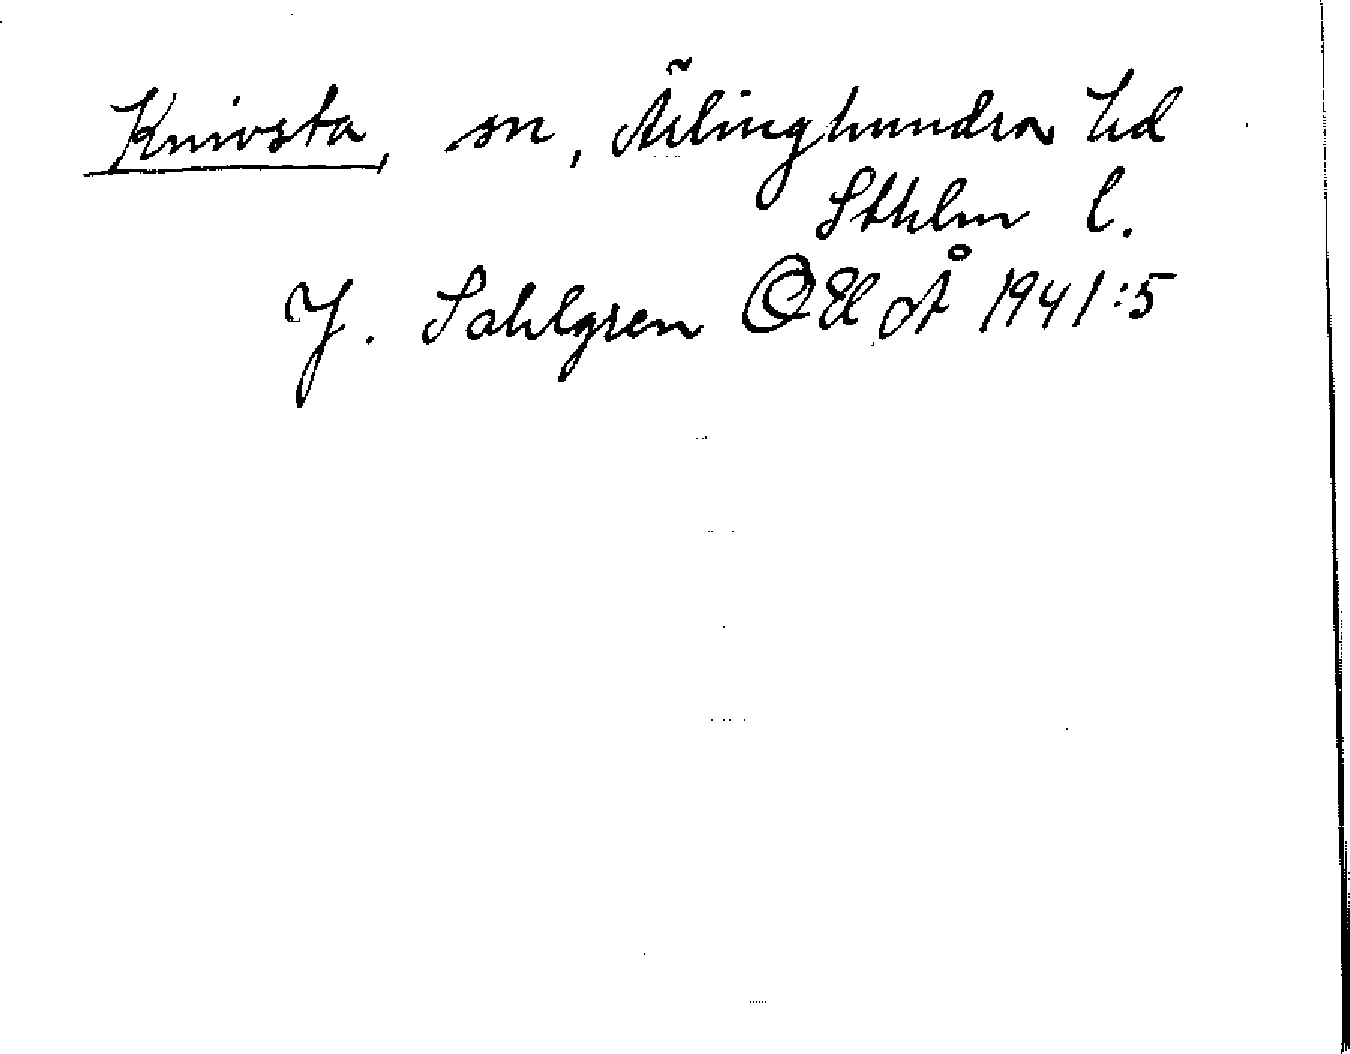 Knivsta, sn, Ärlinghundra hd
Sthlm l.
J. Sahlgren OUÅ 1941:5